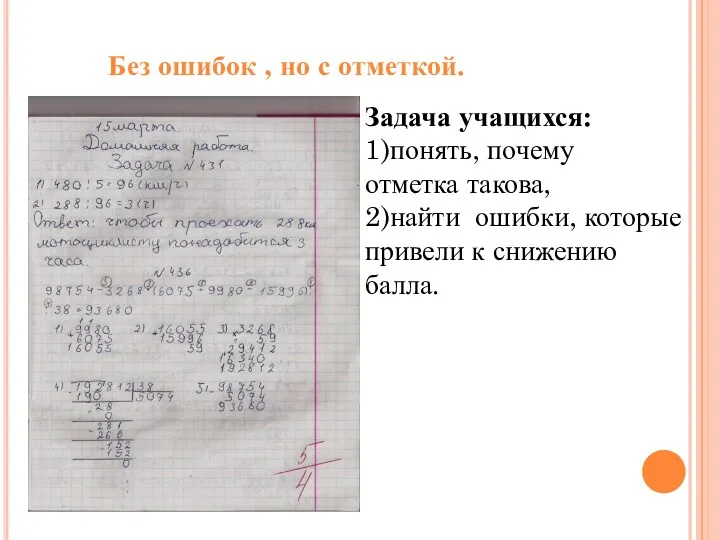 Без ошибок , но с отметкой.
Задача учащихся:
1)понять, почему
отметка такова,
2)найти ошибки, которые
привели к снижению
балла.
15 марта
Домашняя работа.
Задача №431
1) 480 : 5 = 96 (км/ч)
2) 288 : 96 = 3 (ч)
Ответ: чтобы проехать 288 км
мотоциклисту понадобится 3
часа.
№436
98754 - 3268 · (6075 + 9980 - 15996) :
: 38 = 93680
1) + 9980
6075
16055
2) 16055
15996
59
3) × 3268
59
29412
16340
192812
4) - 192812 38
190 5074
- 28
0
- 281
266
- 152
152
0
5) - 98754
5074
93680
5/4